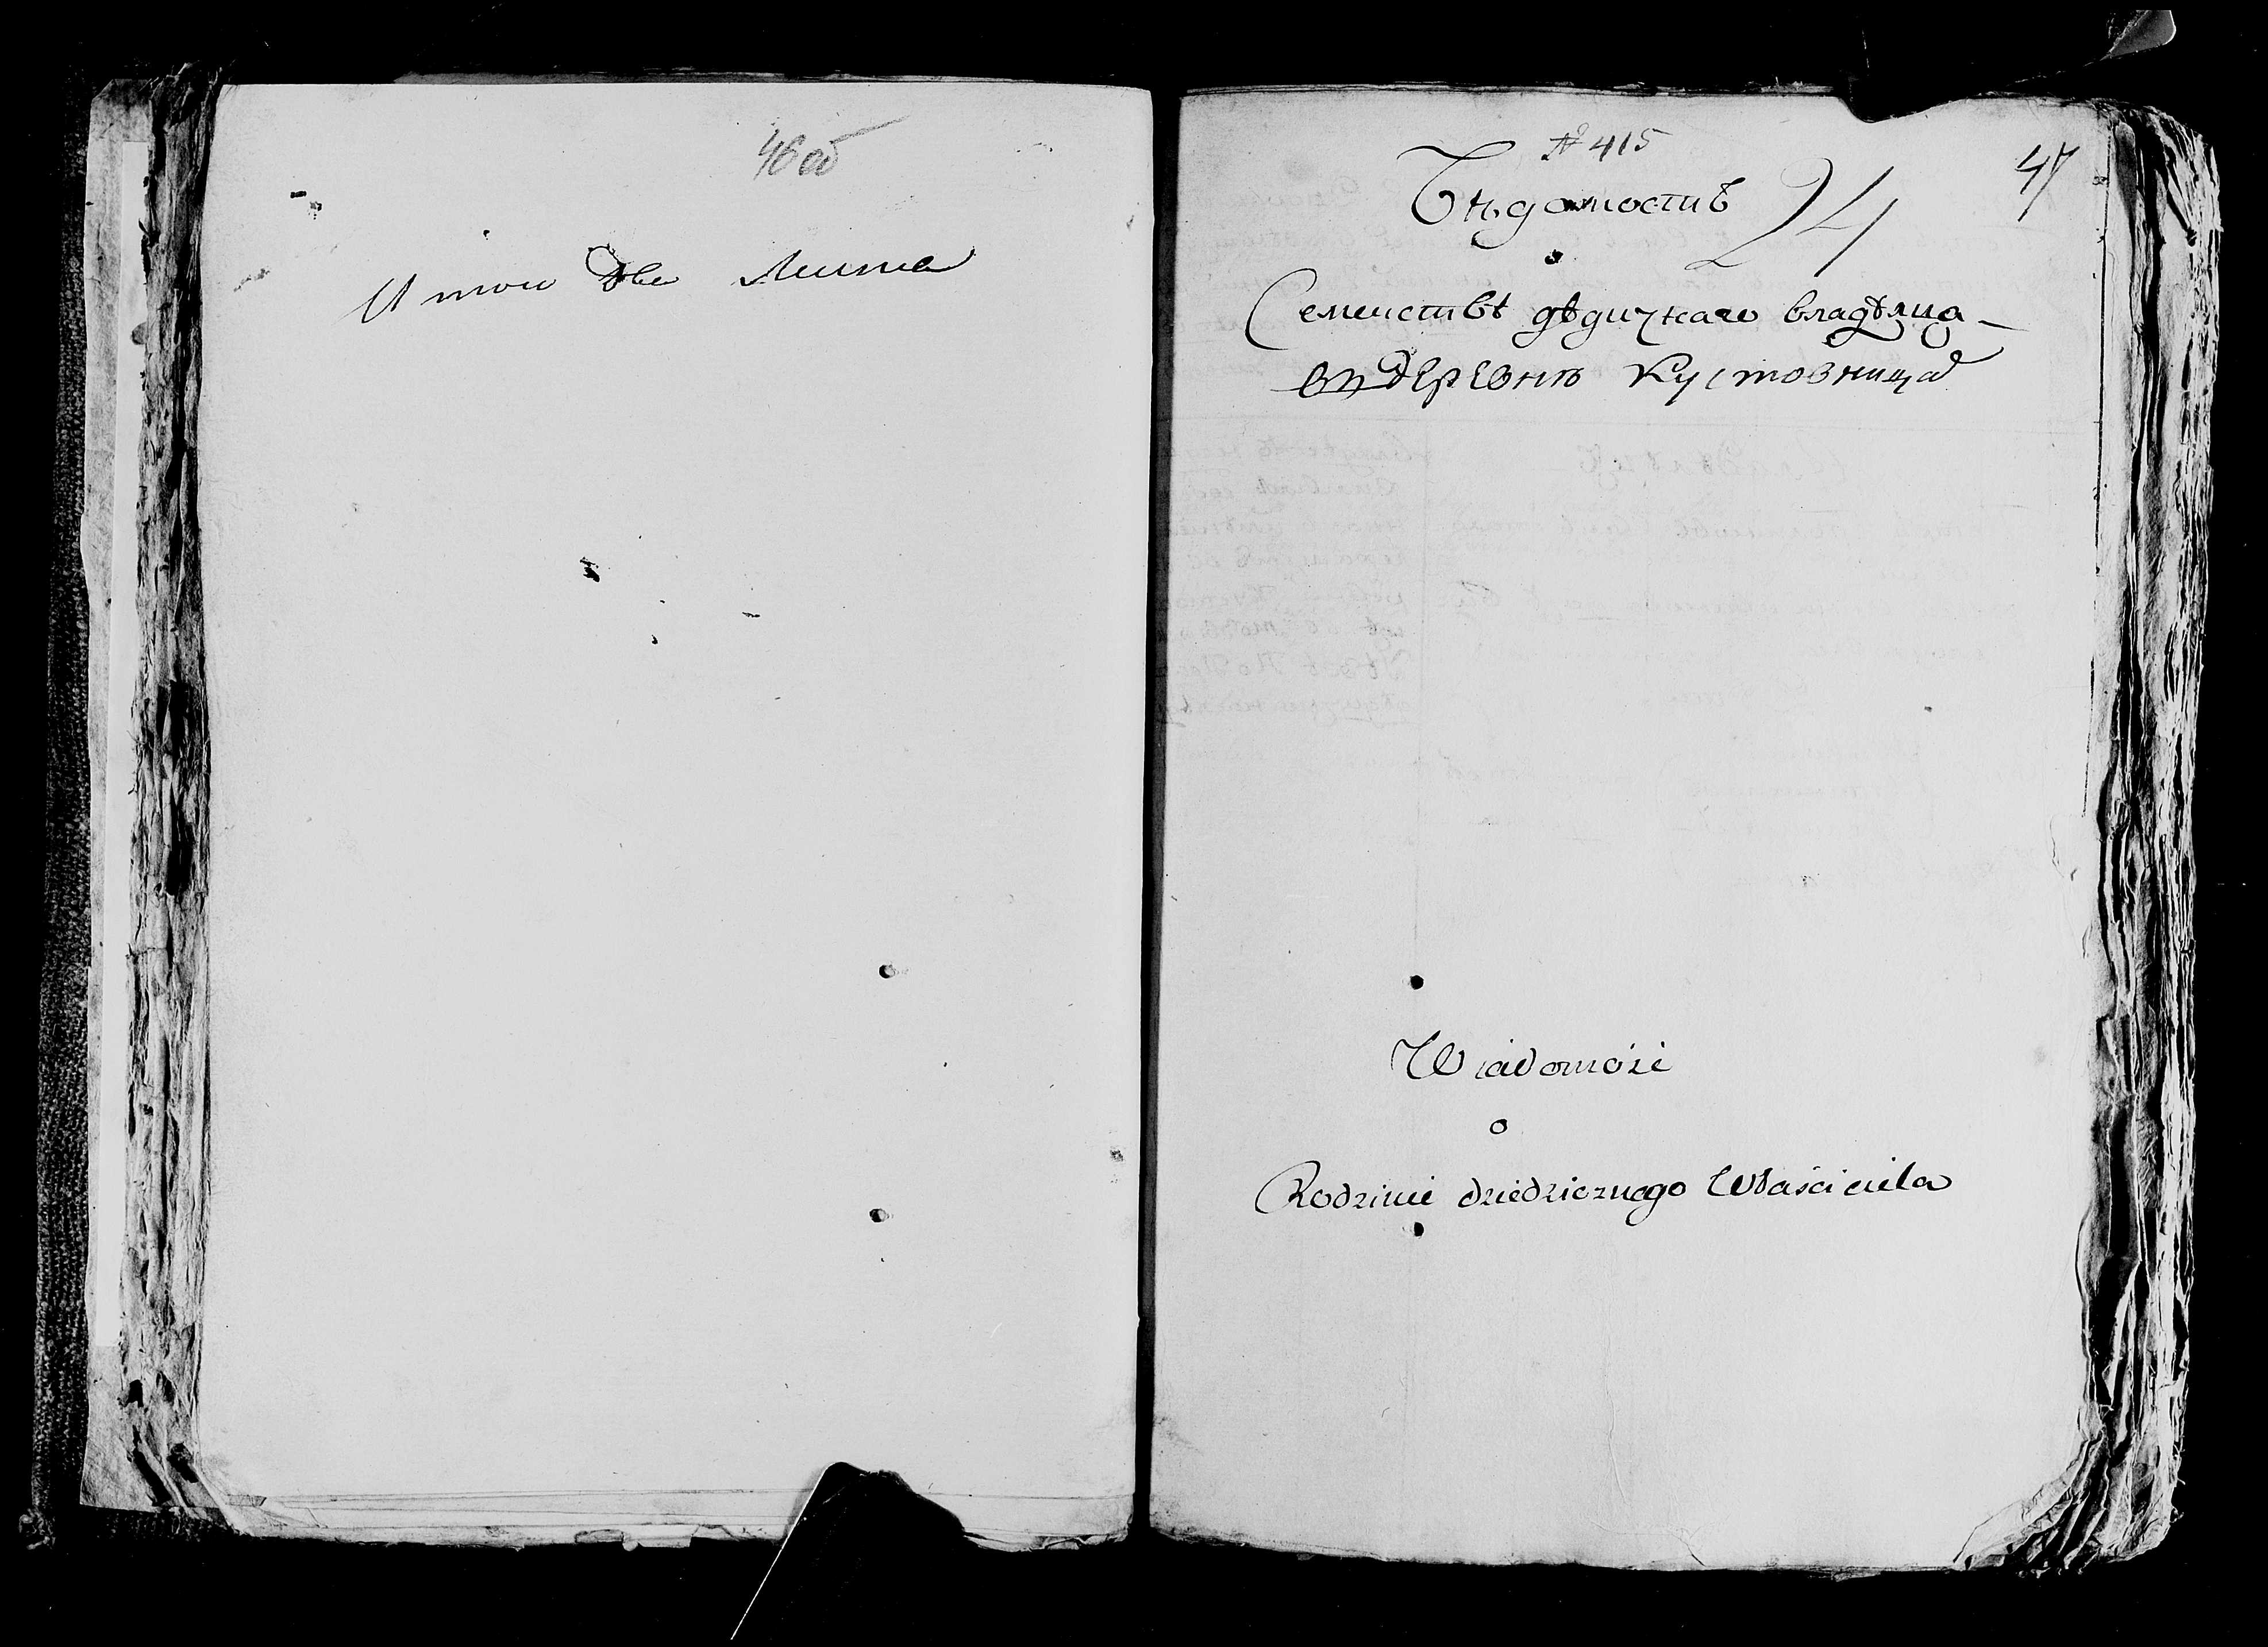 46 об
Итои две Листа
№ 415
47
Вѣдомость
24
о
Семействѣ дѣдичнаго владѣлца
въ деревнѣ Кустовницa
Wiadomość
o
Rodzinie dziedzicznego Właściciela